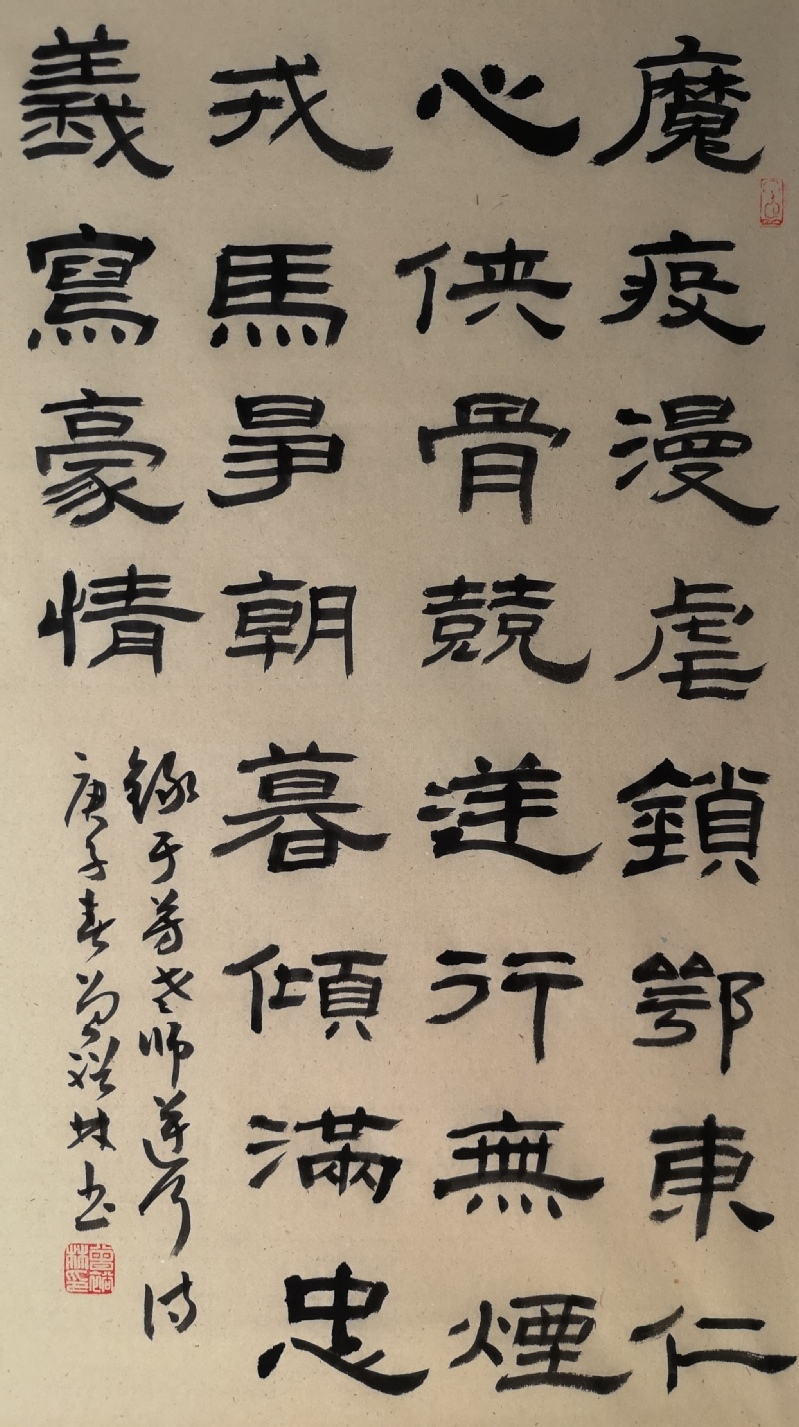 魔疫漫虐鎖鄂東仁
心俠骨競逆行無煙
戎馬爭朝暮傾滿忠
義寫豪情
錄于芳老師逆行詩
庚子春曾裕林书
曾裕林印